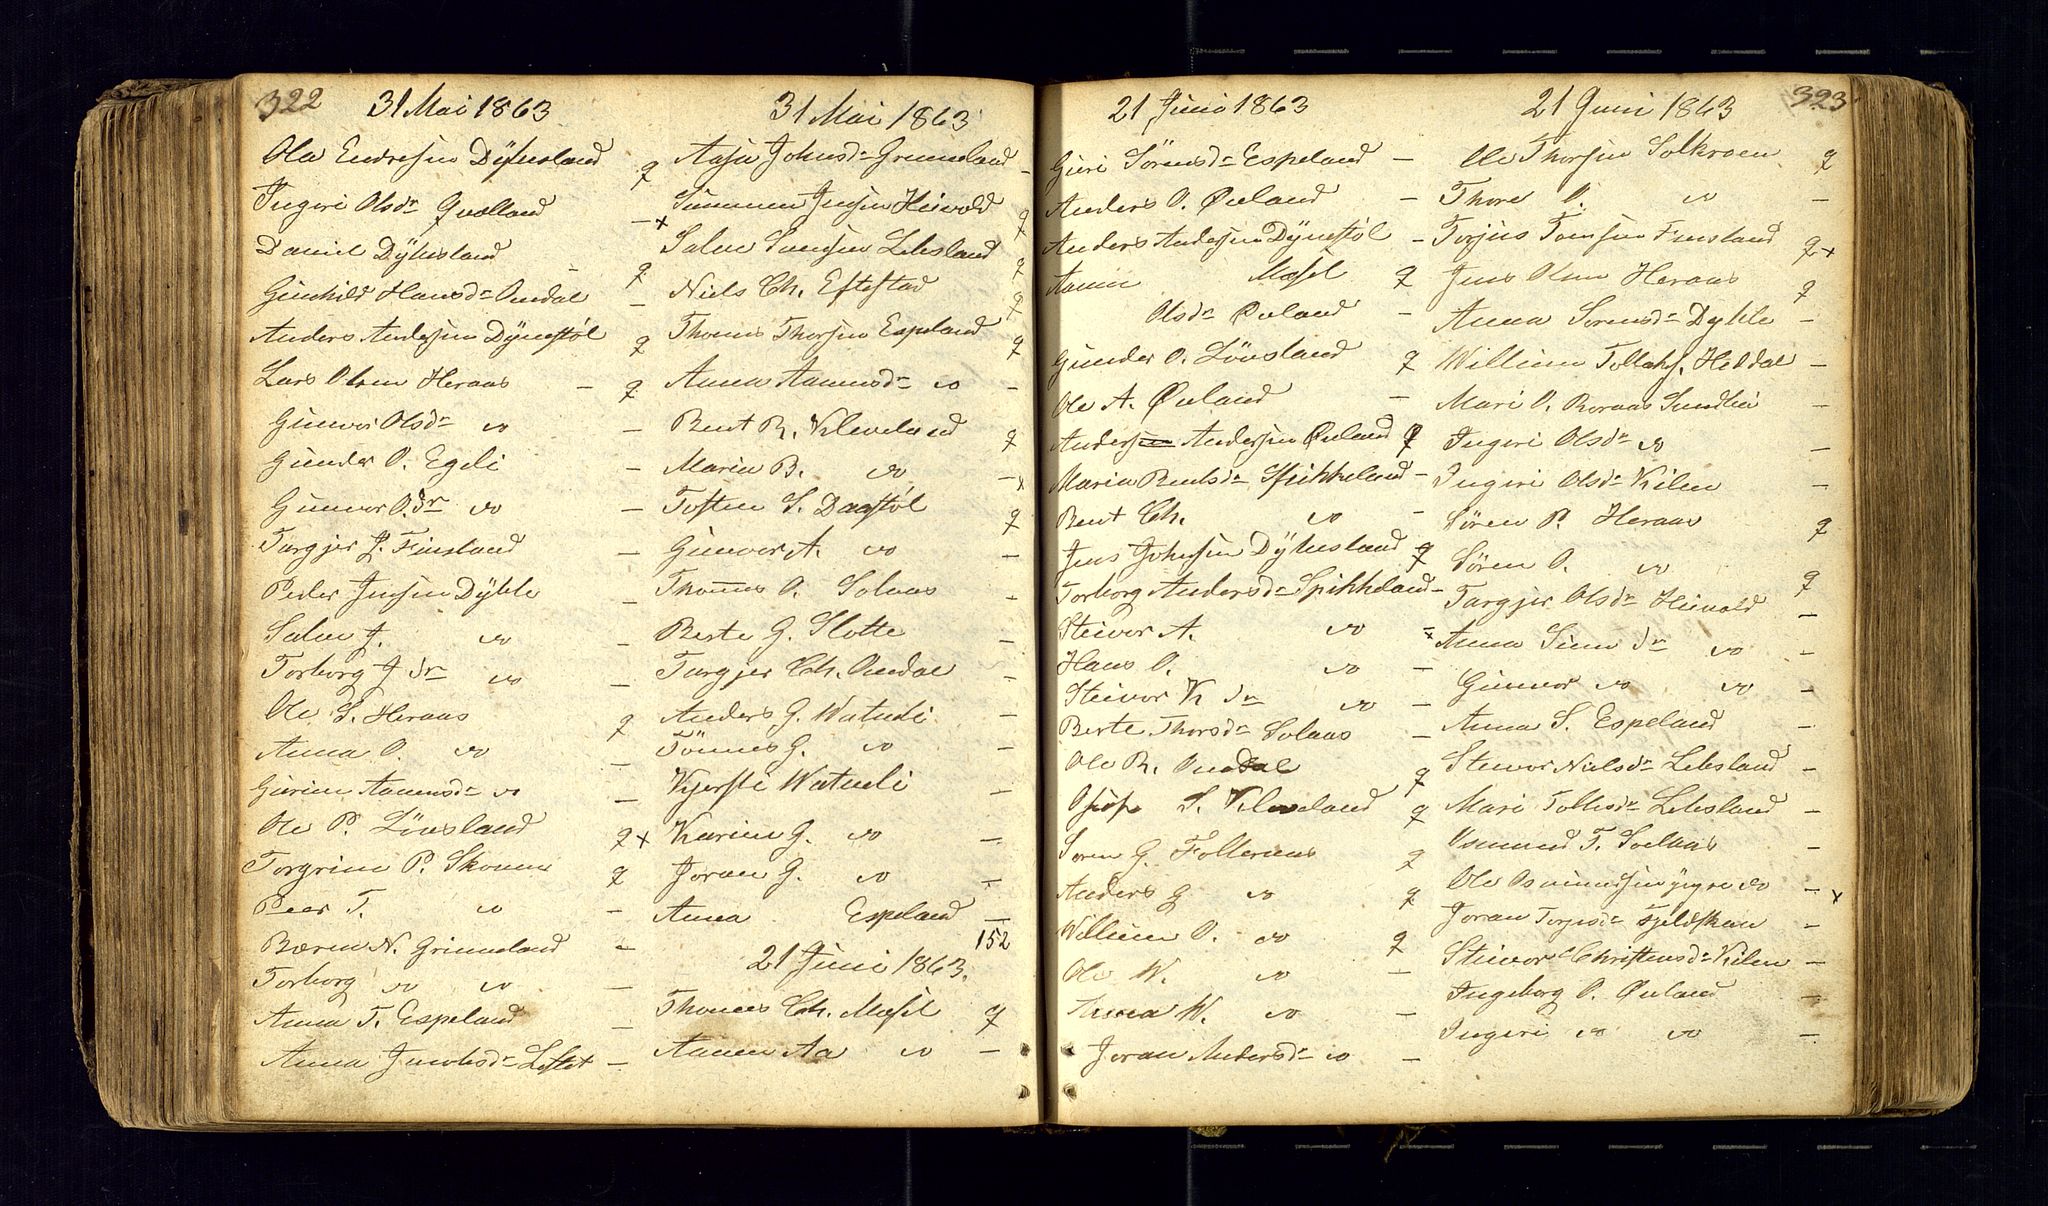 322
31 Mai 1863
Ole Endresen Dyhlesland q
Ingeri Olsdr Qvælland —
Daniel Dyhlesland — q
Gunhild Hansdr Omdal —
Anders Andersen Dynestøl q
Lars Olsen Heraas — q
Gunvor Olsdr do —
Gunder O. Egeli —
Gunvor O. dr do —
Targjer J. Finsland —
Peder Jensen Dyhle —
Salve J. do —
Torborg J dr do —
Ole S. Heraas q
Anna O. do —
Gurine Aanensdr do —
Ole P. Lönsland q
Torgrim P. Skomm q
Peer T. do —
Bæren N. Grimeland —
Torborg do do —
Anna T. Espeland —
Anna Jacobsdr —
31 Mai 1863
Aasa Johnsdr Grimeland —
Gunnar Jensen Heivold q
× Salve Svensen Lilesland q
Niels Ch. Eftestad q
Thomas Thorsen Espeland q
Anna Aanensdr do —
Bent R. Kleveland q
Maria B. do —
Tosten S. Daastöl q
Gunvor A. do —
Thomes O. Solaas —
Berte G. Slotte —
Targjer Ch. Omdal —
Anders G. Watneli —
Tönnes G. do —
Kjersti Watneli —
× Karine G. do —
Joran G. do —
Anna Espeland —
152
21 Juni 1863.
Thomas Ch. Mosel q
Aanen Aa do —
21 Juni 1863
Guri Sörensdr Espeland —
Anders O. Øuland —
Anders Andersen Dynestöl —
Aanen Mosel q
Olsdr Øuland —
Gunder O. Lönsland q
Ole A. Øuland —
Anders Andersen Øuland q
Maria Bentsdr Spikkeland —
Bent Ch. do —
Jens Johnsen Dyhlesland q
Torborg Andersdr Spikkeland —
Steivor A. do —
Hans O. do —
Steivor K dr do —
Berte Thorsdr Solaas —
Ole R. Omdal q
S. Kleveland q
Sören G. Folleraas q
Anders G do q
Willium O. do q
Ole W. do —
Anna W. do —
Joran Andersdr do —
323
21 Juni 1863
Ole Thorsen Solkroen q
Thore O. do —
Torjus Tomsen Finsland q
Jens Olsen Heraas q
Anna Sorensdr Dyhle —
Willium Tollaks. Heddal —
Mari O. Roraas —
Ingeri Olsdr do —
× Ingeri Olsdr Kilen —
Sören P. Heraas q
Sören O. do q
Targjer Olsdr Heivold —
× Anna dr do —
Gunvor do do —
Anna S. Espeland —
Steivor Nielsdr Lilesland —
Mari Tollesdr Lilesland —
Osmund T. Soelaas —
Ole Osmundsen yngre do —
Joran Torjusdr —
Steivor Christensdr Kilen —
Ingeborg O. Øuland —
Ingeri do do —